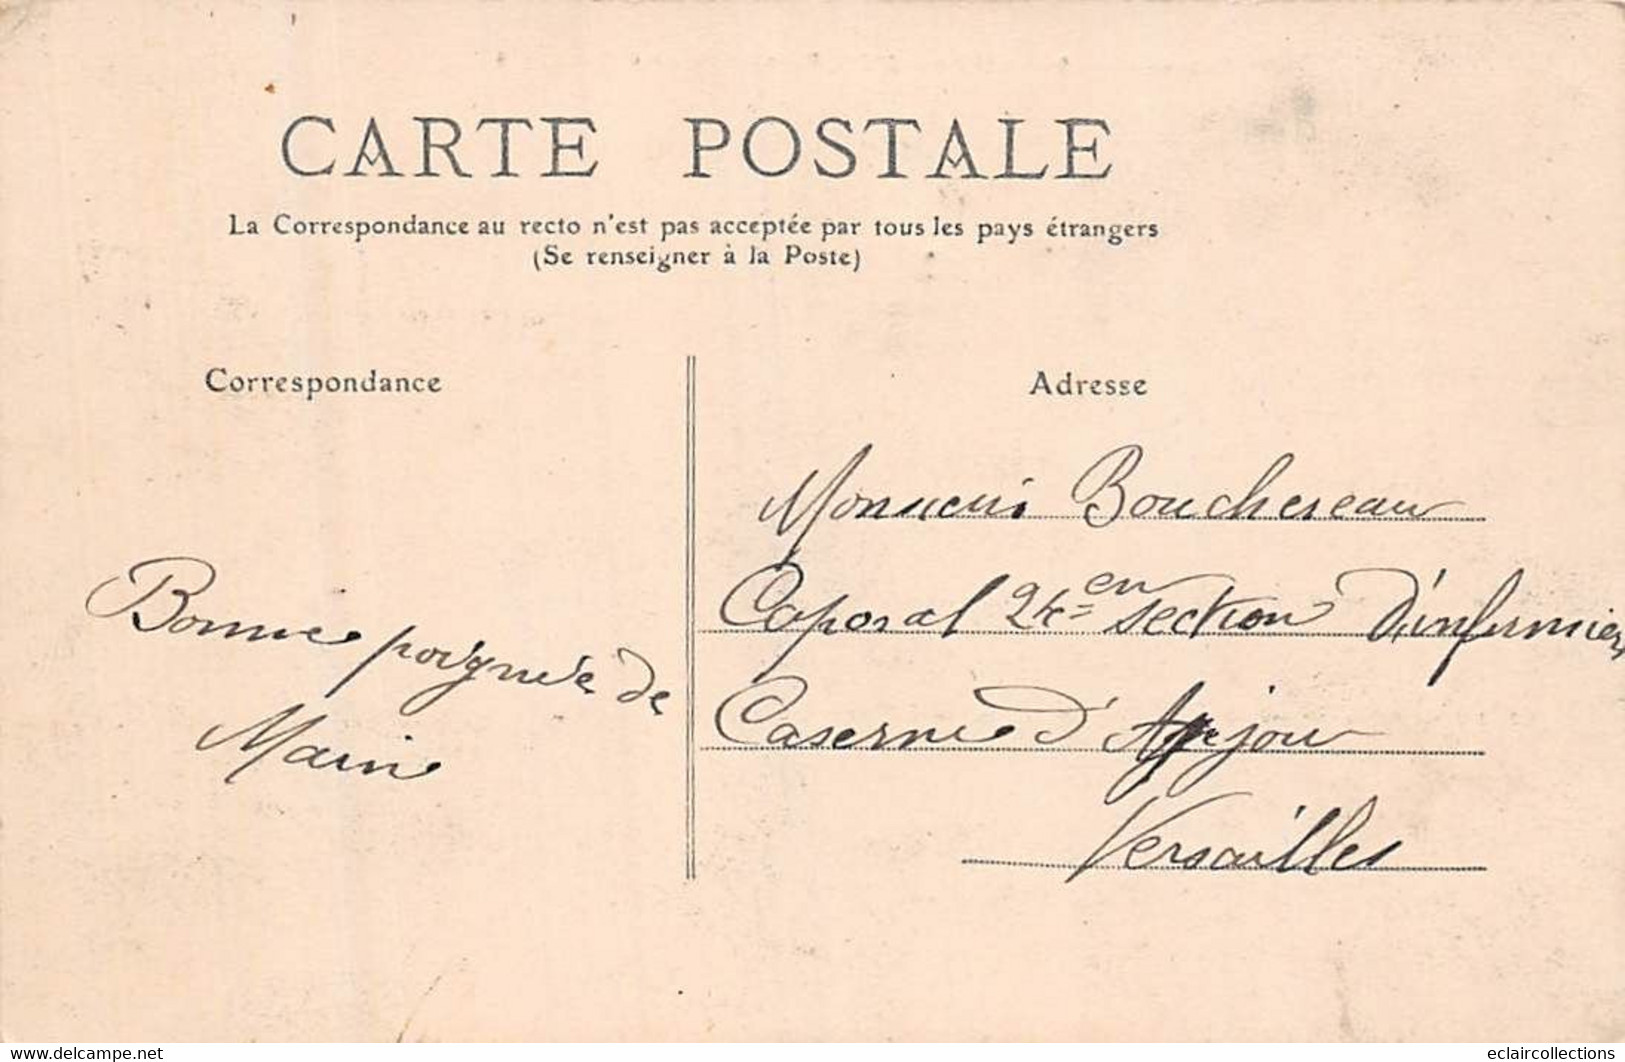 CARTE POSTALE
La Correspondance au recto n'est pas acceptée par tous les pays étrangers
(Se renseigner à la Poste)
Correspondance
Bonne poignée de
Main
Adresse
Monsieur Bouchereau
Caporal 24en section d'infirmiers
Caserne d'Anjou
Versailles
www.delcampe.net
eclaircollections